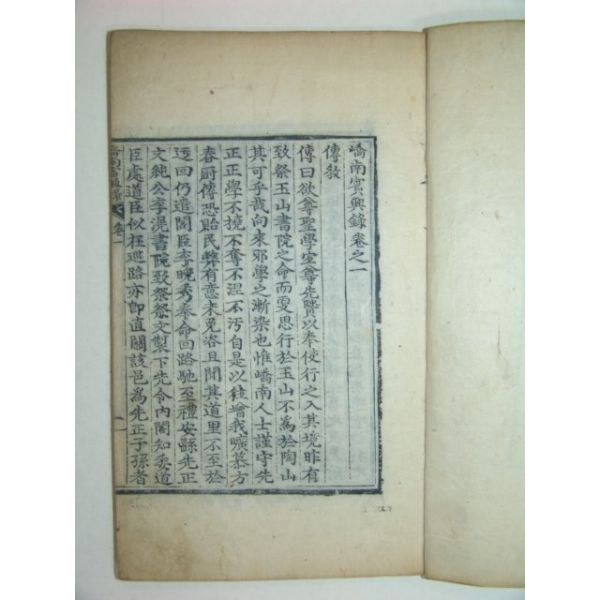 嶠南賓興錄卷之一
傳敎
傳曰欲尊聖學宜尊先賢以奉使行之入其境昨有
致祭玉山書院之命而雯思行於玉山不爲於陶山
其可乎哉向來邪學之漸染也惟嶠南人士謹守先
正正學不撓不奪不涅不汚自是以往增我曠慕方
春廚傳恐貽民弊有意未免沓且聞其道里不至於
迂回仍遣閣臣李晩秀奉命回路馳至禮安縣先正
文純公李滉書院致祭祭文製下先令內閣知委道
臣處道臣似在巡路亦卽直關該邑爲先正子孫者
卷一